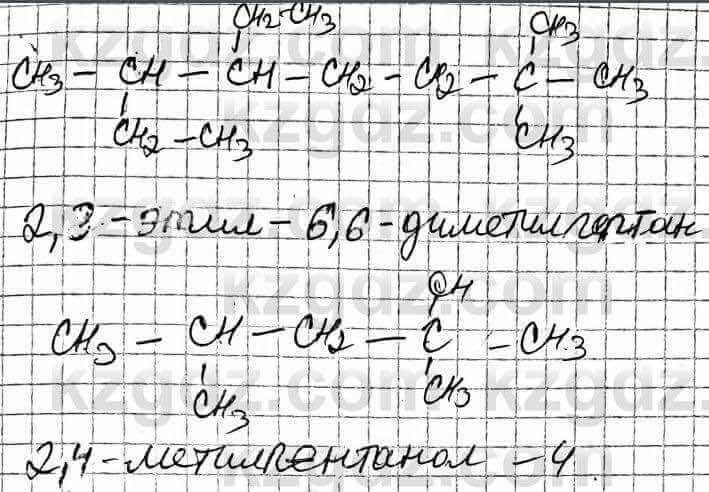 CH2-CH3 CH3
CH3 - CH - CH - CH2 - CH2 - C - CH3
CH2 - CH3 CH3
2,3-этил-6,6-диметилгептан
OH
CH3 - CH - CH2 - C - CH3
CH3 CH3
2,4-метилпентанол -4
kzgdz.com